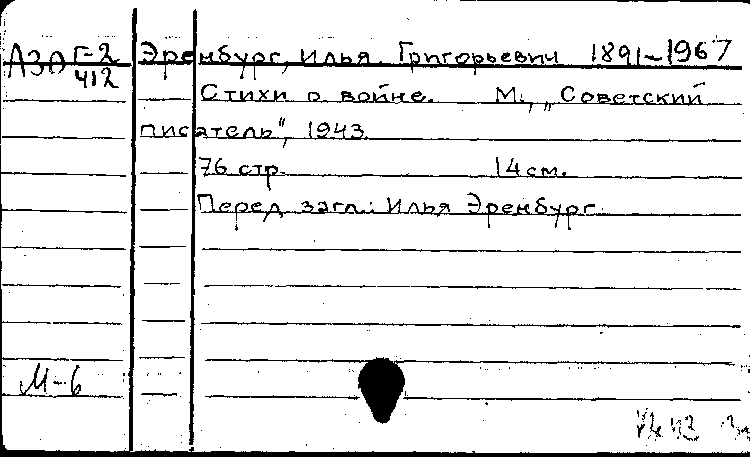 АЗО Г-2 Эренбург, Илья Григорьевич 1891-1967
412
Стихи о войне. М., „Советский
писатель", 1943
76 стр. 14 см.
Перед загл.: Илья Эренбург.
М-6